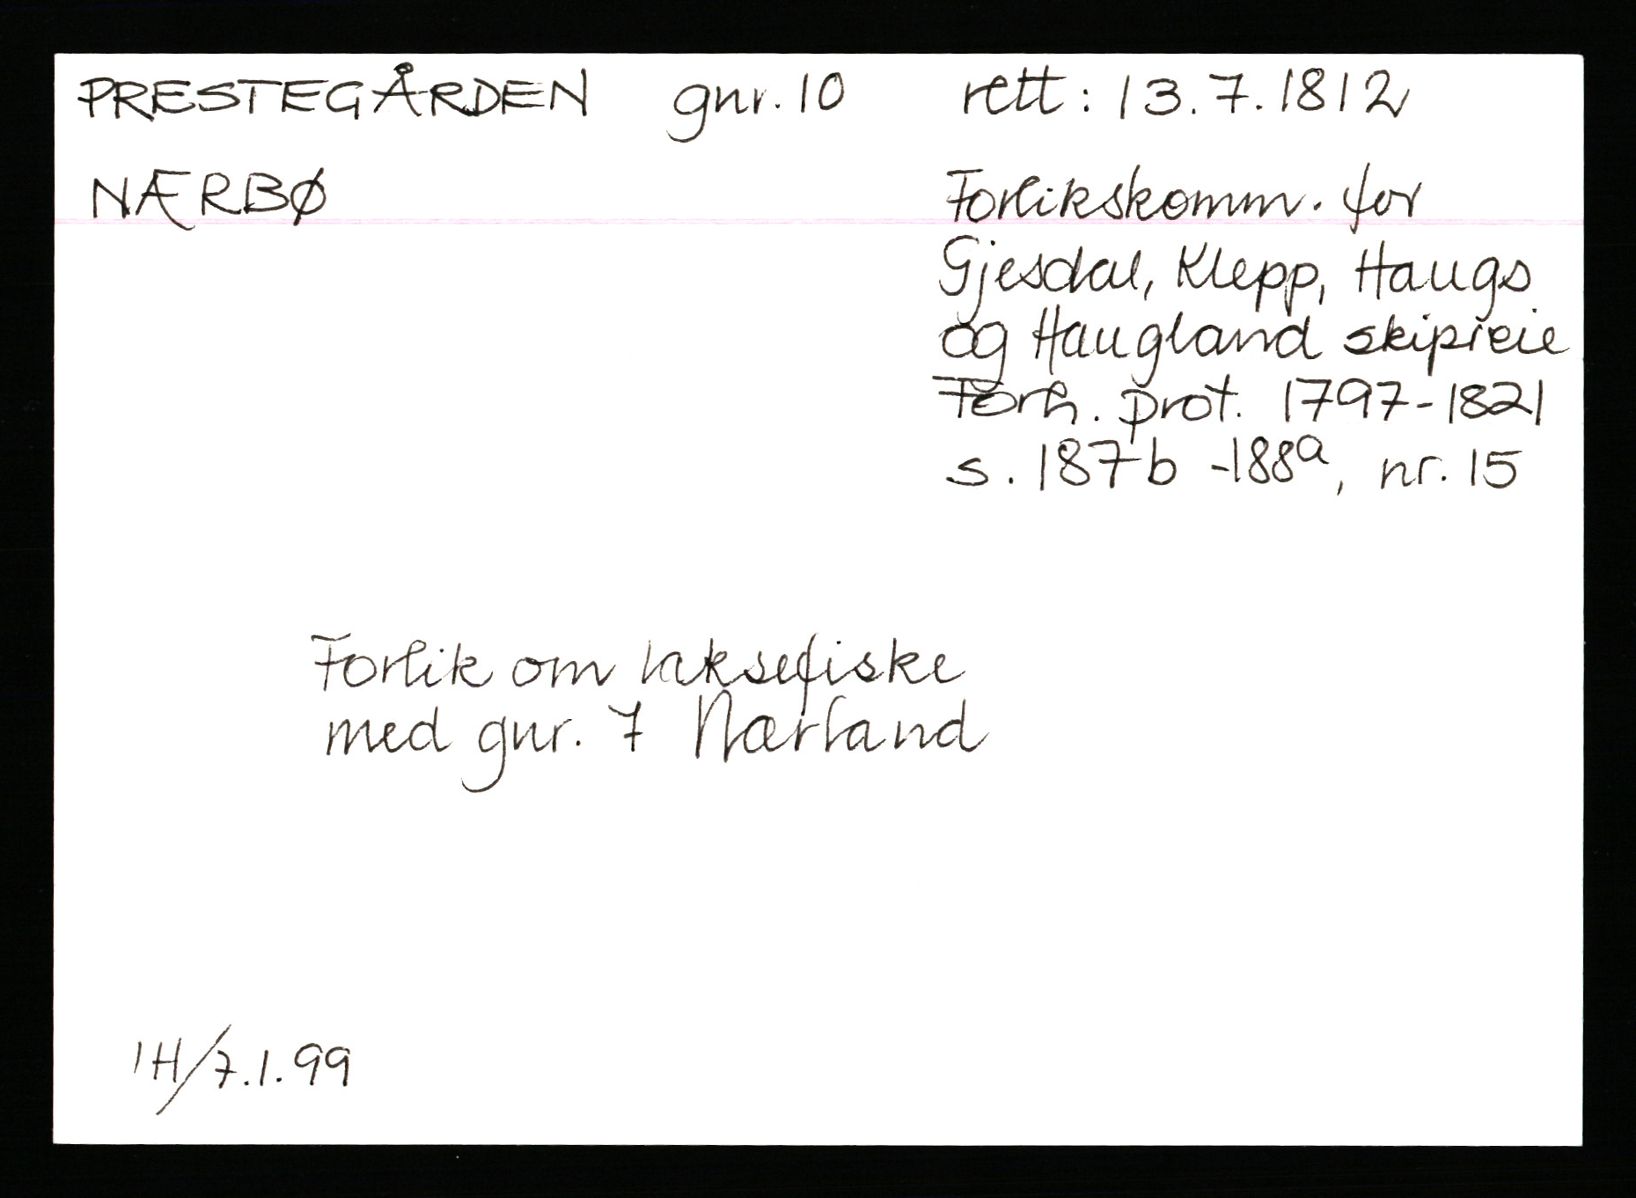 PRESTEGÅRDEN gnr. 10 rett: 13.7.1812
NÆRBØ
Forlikskomm. for
Gjesdal, Klepp, Haugs
og Haugland skipreie
Forh. prot. 1797-1821
s. 187b -188a, nr. 15
Forlik om laksefiske
med gnr. 7 Nærland
IH/7.1.99